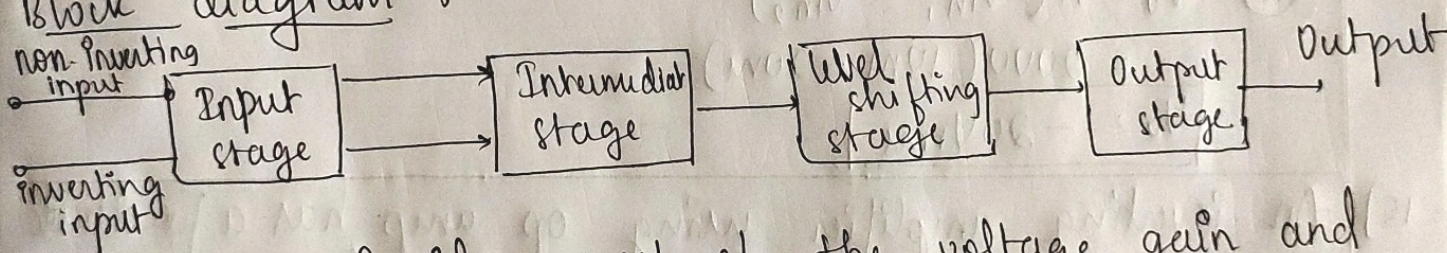 Block diagram
non-inverting
input
inverting
input
Input
stage
Intermediat
stage
level
shifting
stage
Output
stage
Output
the voltage gain and